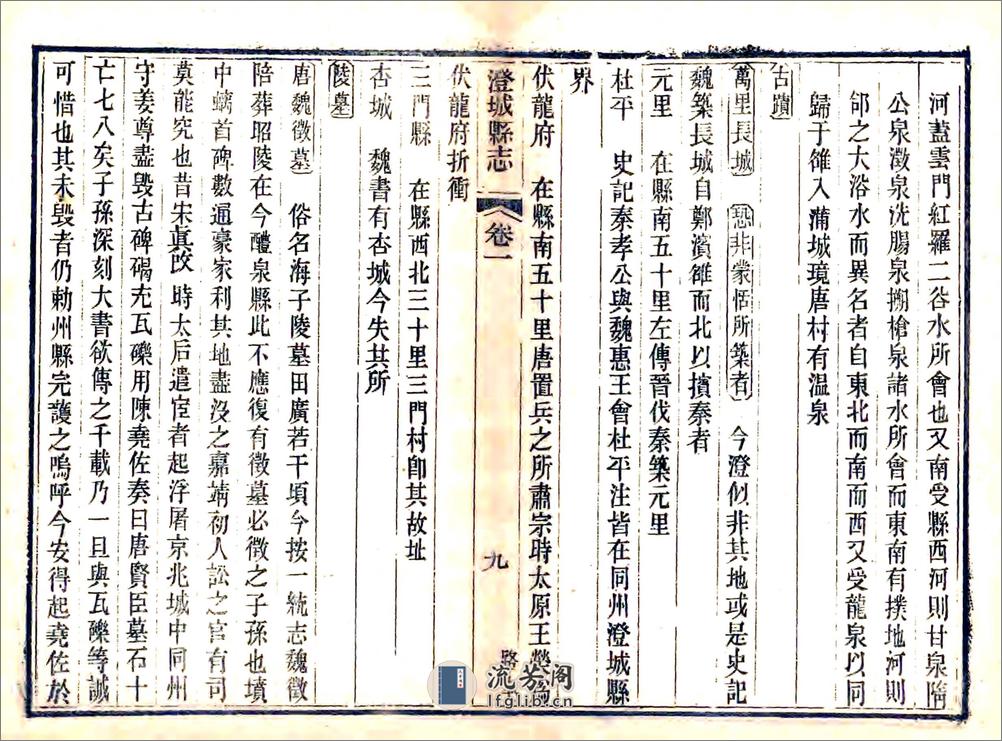 河蓋雲門紅羅二谷水所會也又南受縣西河則甘泉隋
公泉澂泉洗腸泉搠槍泉諸水所會而東南有撲地河則
郃之大浴水而異名者自東北而南而西又受龍泉以同
歸于雒入蒲城境唐村有温泉
古蹟
萬里長城 恐非蒙恬所築者 今澄似非其地或是史記
魏築長城自鄭濱雒而北以擯秦者
元里 在縣南五十里左傳晉伐秦築元里
杜平 史記秦孝公與魏惠王會杜平注皆在同州澄城縣
界
伏龍府 在縣南五十里唐置兵之所肅宗時太原王
澄城縣志 卷一 九
伏龍府折衝
三門縣 在縣西北三十里三門村卽其故址
杏城 魏書有杏城今失其所
陵墓
唐魏徵墓 俗名海子陵墓田廣若干頃今按一統志魏徵
陪葬昭陵在今醴泉縣此不應復有徵墓必徵之子孫也墳
中螭首碑數通豪家利其地盡沒之嘉靖初人訟之官有司
莫能究也昔宋眞改時太后遣宦者起浮屠京兆城中同州
守姜尊盡毁古碑碣充瓦礫用陳堯佐奏曰唐賢臣墓石十
亡七八矣子孫深刻大書欲傳之千載乃一旦與瓦礫等誠
可惜也其未毁者仍勅州縣完護之嗚呼今安得起堯佐於
流芳阁
lfglib.cn